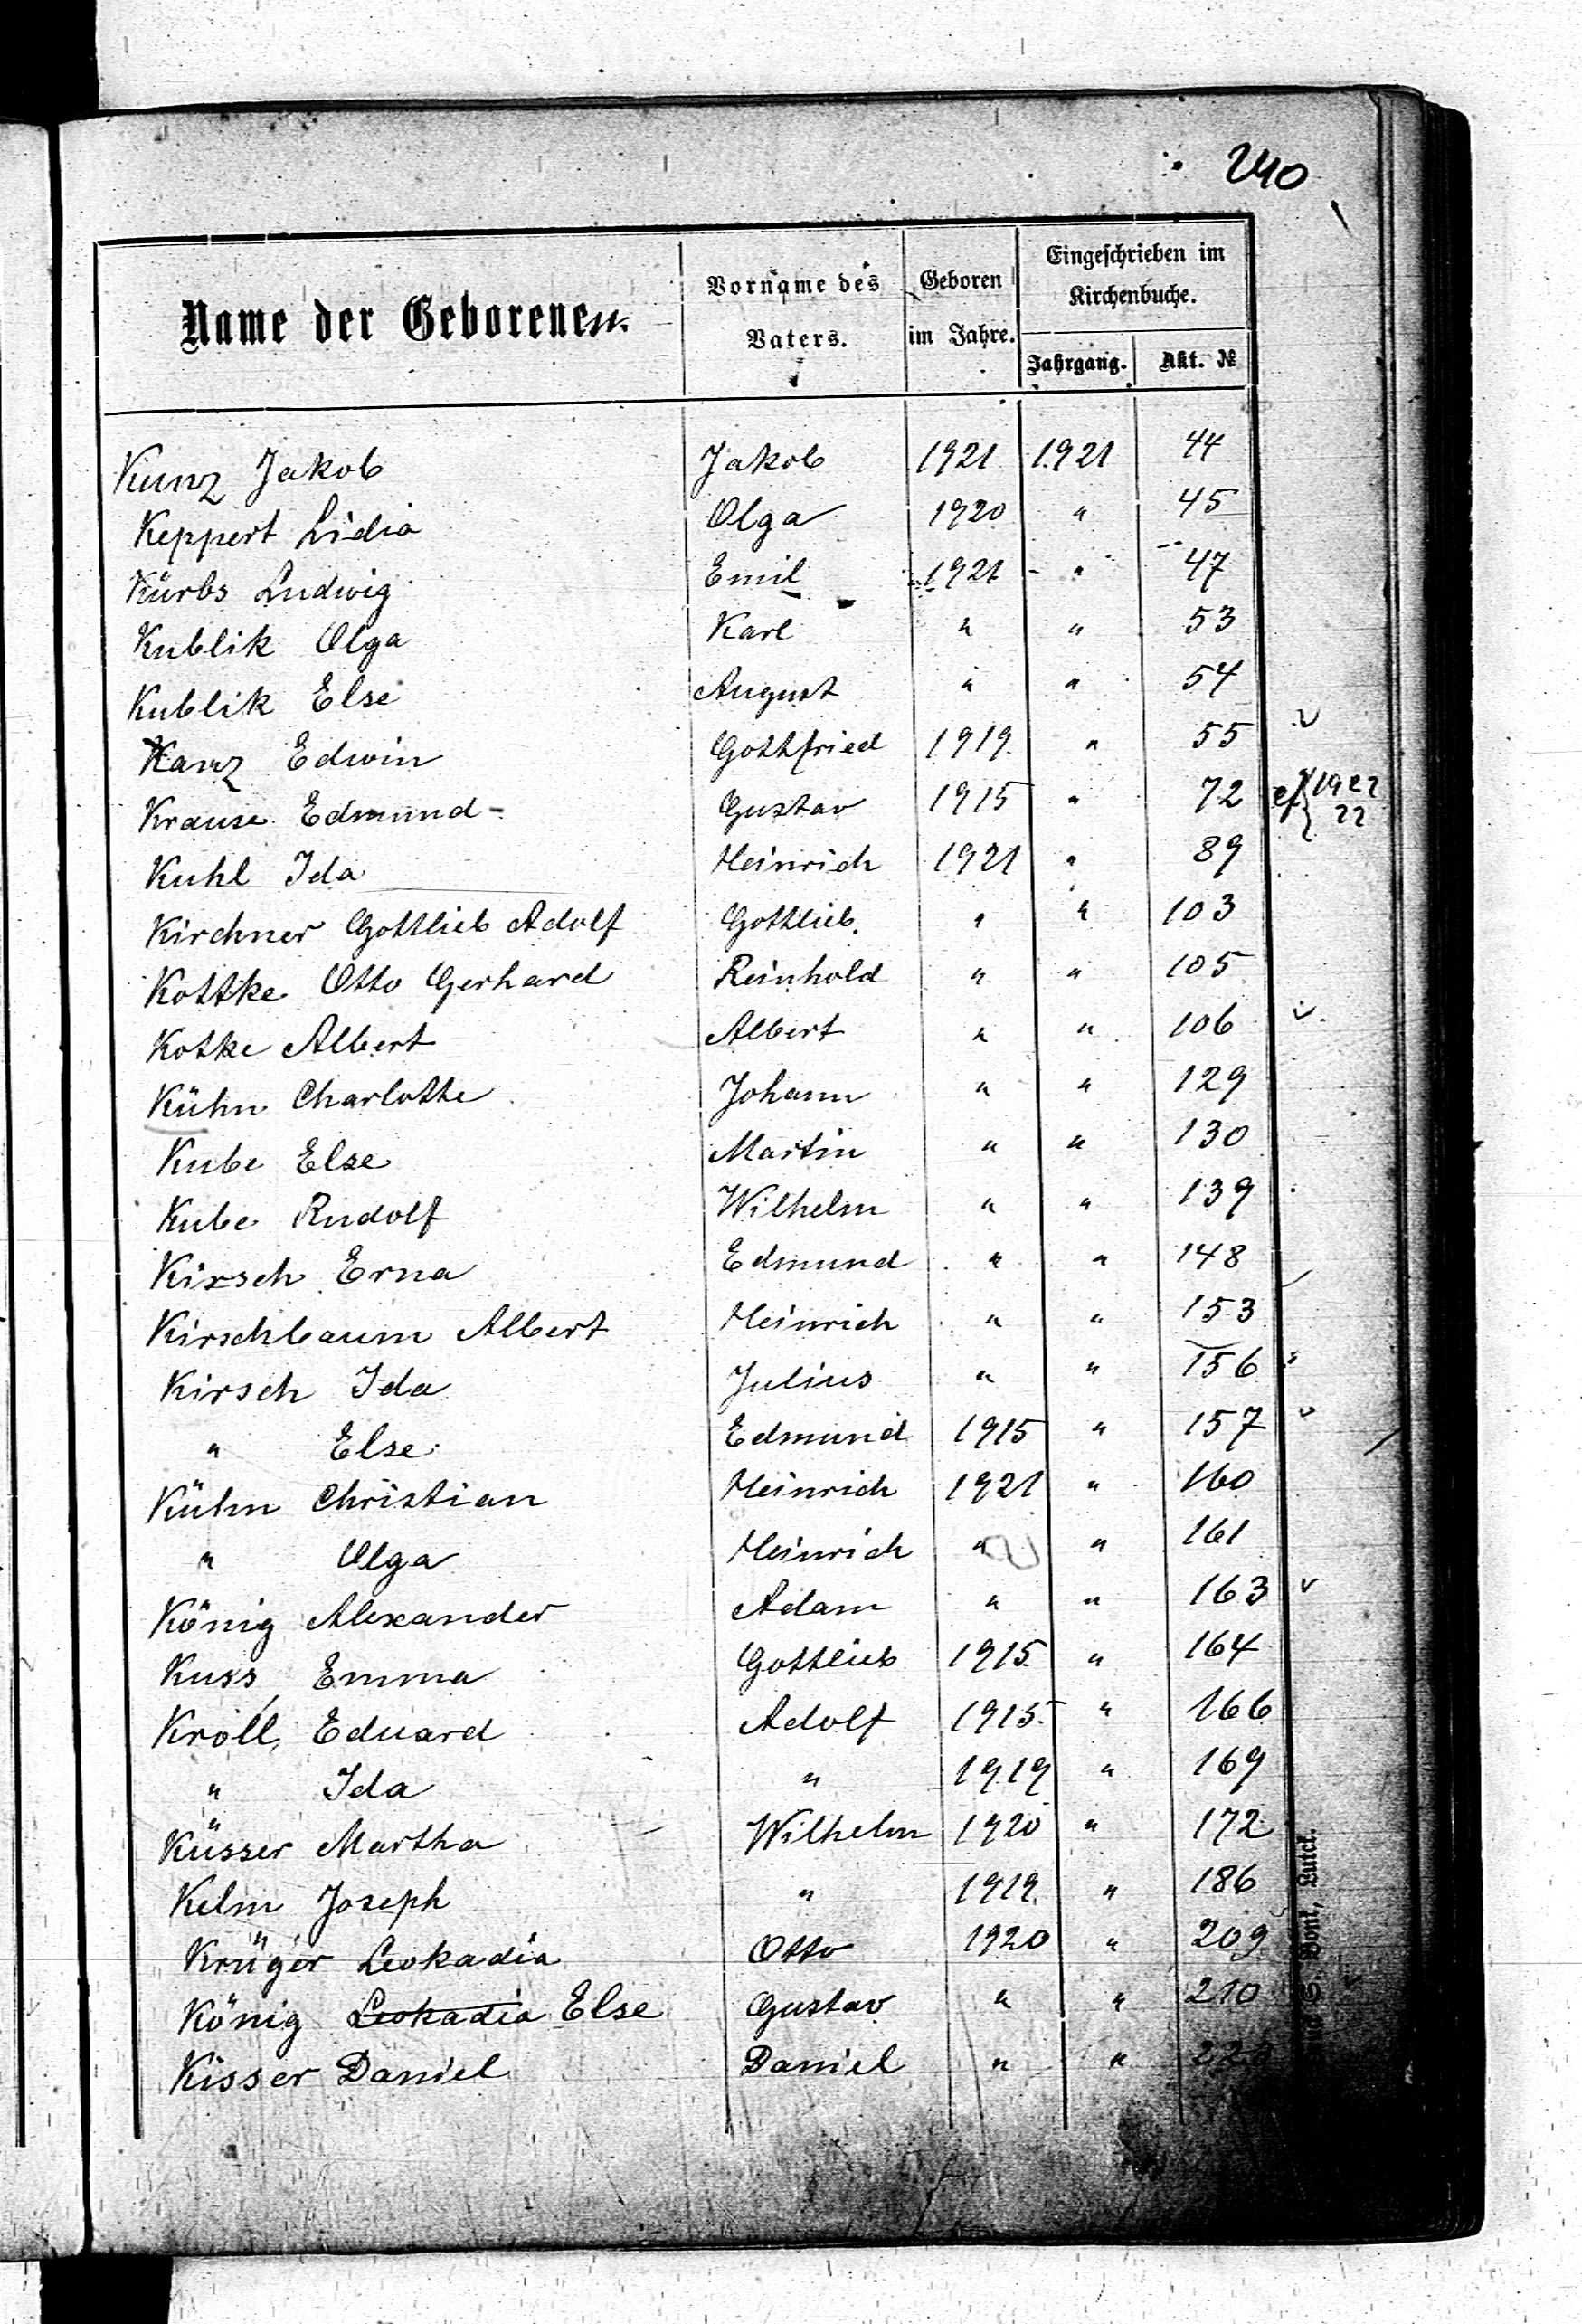 240
Name der Geborenen.
Vorname des Vaters.
Geboren im Jahre.
Eingeschrieben im Kirchenbuche.
Jahrgang. Akt. №
Kunz Jakob Jakob 1921 1921 44
Keppert Lidia Olga 1920 " 45
Kürbs Ludwig Emil 1921 " 47
Kublik Olga Karl " " 53
Kublik Else August " " 54
Kanz Edwin Gottfried 1919. " 55 v
Krause Edmund Gustav 1915 " 72 cf 1922 22
Kuhl Ida Heinrich 1921 " 89
Kirchner Gottlieb Adolf Gottlieb. " " 103
Kottke Otto Gerhard Reinhold " " 105
Kotke Albert Albert " " 106 v
Kühn Charlotte Johann " " 129
Kube Else Martin " " 130
Kube Rudolf Wilhelm " " 139
Kirsch Erna Edmund " " 148
Kirschbaum Albert Heinrich " " 153
Kirsch Ida Julius " " 156
" Else Edmund 1915 " 157 v
Kühn Christian Heinrich 1921 " 160
" Olga Heinrich " " 161
König Alexander Adam " " 163 v
Kuss Emma Gottlieb 1915. " 164
Kroll, Eduard Adolf 1915. " 166
" Ida " 1919 " 169
Küsser Martha Wilhelm 1920 " 172
Kelm Joseph " 1919. " 186
Krüger Leokadia Otto 1920 " 209
König Leokadia Else Gustav " " 210 v
Kisser Daniel Daniel " "
Bont, Lutck.